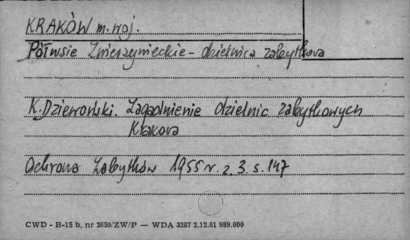 KRAKÓW m. woj.
Półwsie Zwierzynieckie - dzielnica zabytkowa
K. Dziewoński. Zagadnienie dzielnic zabytkowych
Krakowa
Ochrona Zabytków 1955 r. z. 3 s. 147
CWD - B-15 b, nr 2630/ZW/P — WDA 3287 2.12.61 989.000